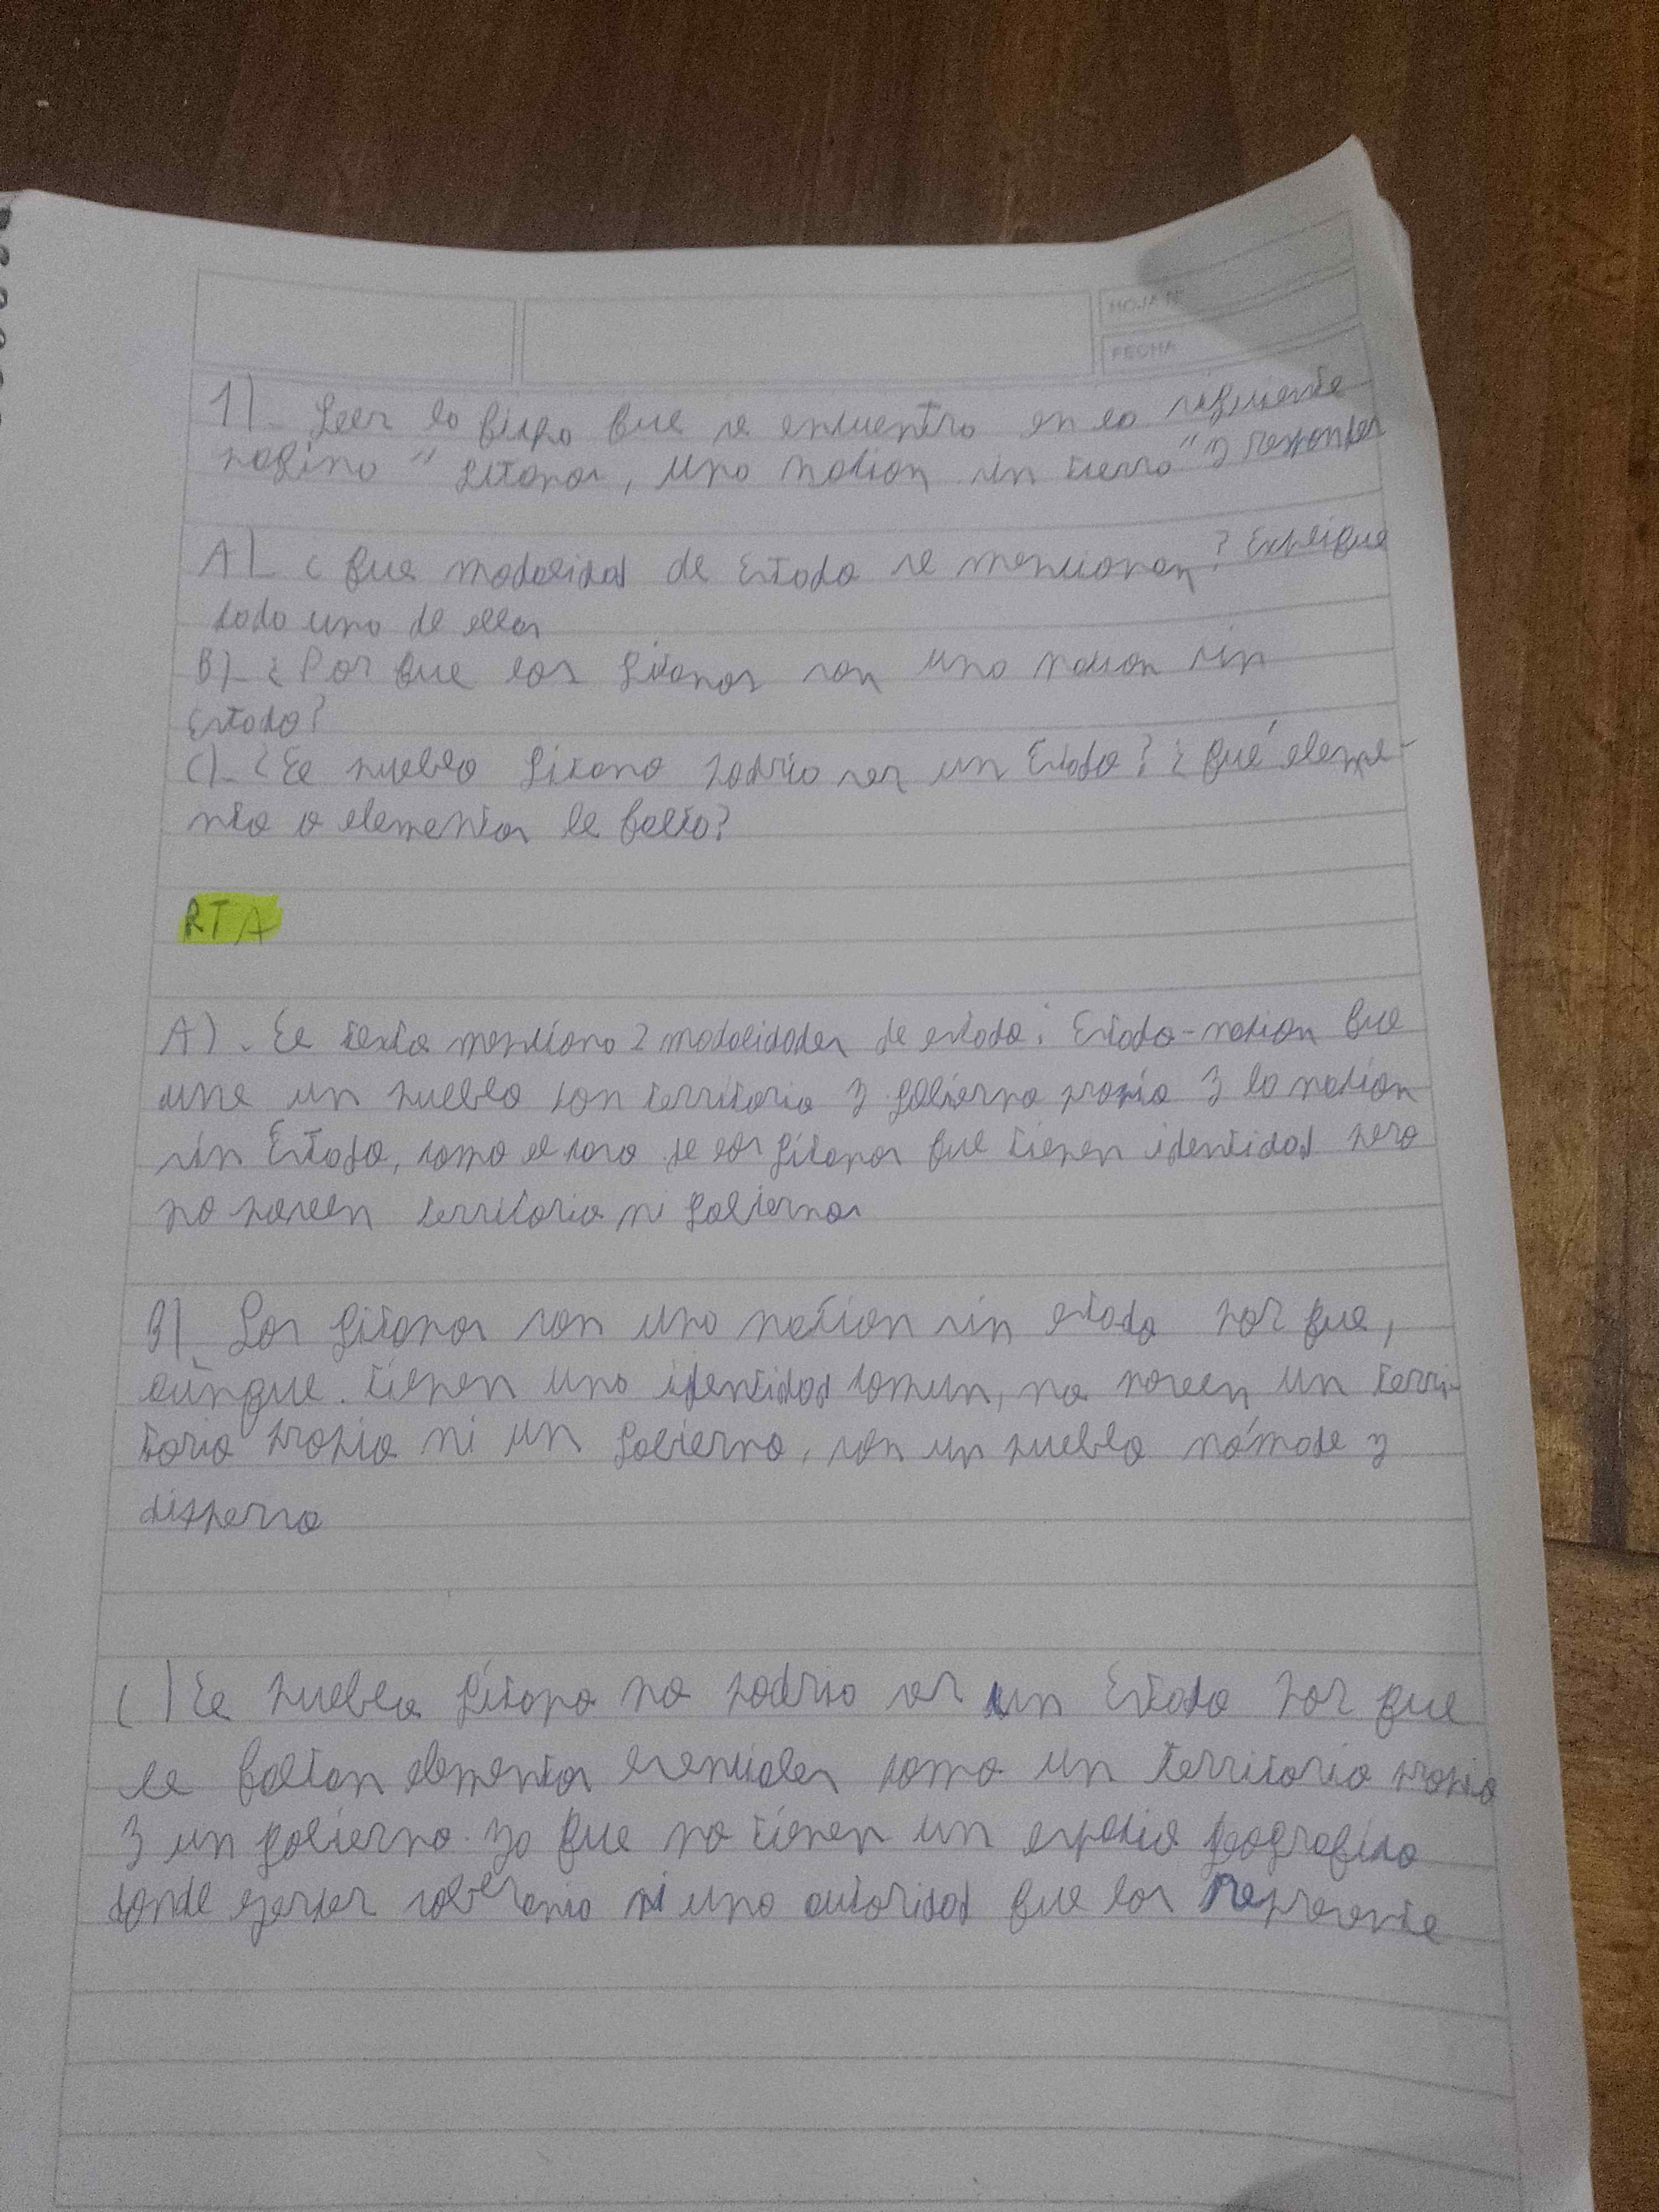 HOJA Nº
FECHA
1)- Leer la ficha que se encuentra en la siguiente
pagina "Gitanos, una nacion sin tierra" y responder
A)- ¿ Que modalidad de Estado se mencionan? Explique
cada una de ellas
B)- ¿Por que los Gitanos son una nacion sin
Estado?
C)- ¿El pueblo Gitano podria ser un Estado? ¿Qué eleme-
nto o elementos le falta?
RTA
A). El texto menciona 2 modalidades de estado: Estado-nacion que
une un pueblo con territorio y gobierno propio y la nacion
sin Estado, como el caso de los Gitanos que tienen identidad pero
no poseen territorio ni gobiernos
B) Los Gitanos son una nacion sin estado por que,
aunque. tienen una identidad comun, no poseen un terri-
torio propio ni un Gobierno, son un pueblo nómade y
disperso
C) El pueblo Gitano no podria ser un Estado por que
le faltan elementos esenciales como un territorio propio
y un gobierno. ya que no tienen un espacio geografico
donde ejercer soberania ni una autoridad que los represente